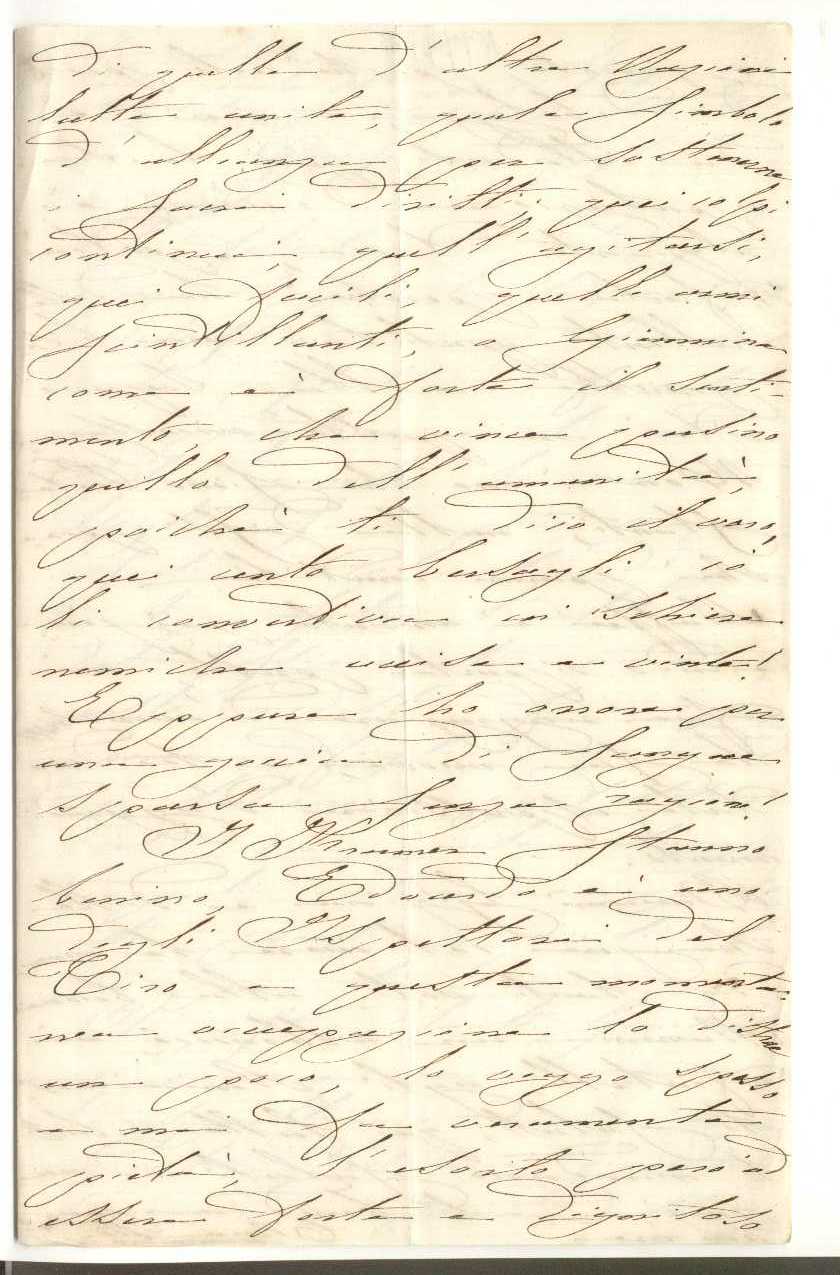 di quelle d'altre Nazioni
tutte unite, quale Simbolo
d'alleanza per sostenerne
i Sacri diritti; quei colpi
continui, quell'agitarsi,
quei fucili, quelle armi
Scintillanti, o Giannina
come è forte il senti-
mento, che vince persino
quello dell'umanità,
poichè ti dico il vero,
quei cento bersagli io
li convertiva in ischiere
nemiche uccise e vinte!
Eppure ho orrore per
una goccia di Sangue
sparsa Senza ragione!
I Kramer Stanno
benino, Edoardo è uno
degli Ispettori del
Tiro e questa momenta-
nea occupazione lo distrae
un poco, lo veggo spesso
e mi fa veramente
pietà, l'esorto però ad
essere forte e dignitoso